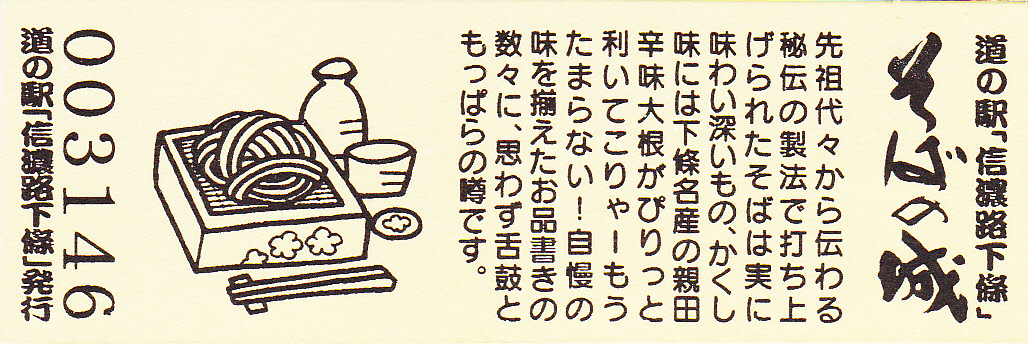 道の駅「信濃路下條」
そばの城
先祖代々から伝わる
秘伝の製法で打ち上
げられたそばは実に
味わい深いもの、かくし
味には下條名産の親田
辛味大根がぴりっと
利いてこりゃーもう
たまらない！自慢の
味を揃えたお品書きの
数々に、思わず舌鼓と
もっぱらの噂です。
003146
道の駅「信濃路下條」発行